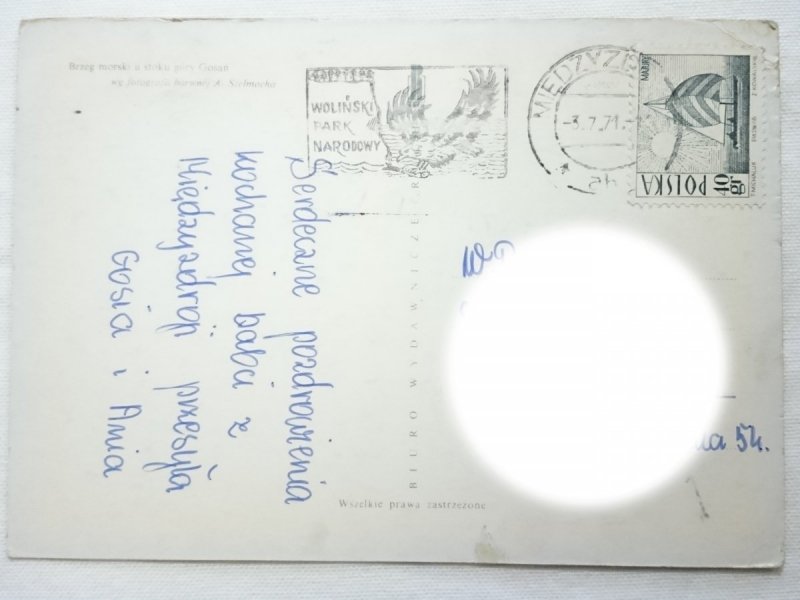 Brzeg morski u stoku góry Gosań
wg fotografii barwnej K. Szelmocha
WOLIŃSKI
PARK
NARODOWY
MIĘDZYZD
-3.7.71.-
MAZURY
40 gr
POLSKA
Serdeczne pozdrowienia
kochanej babci z
Międzyzdroji przesyła
Gosia i Ania
BIURO WYDAWNICZE
Wszelkie prawa zastrzeżone